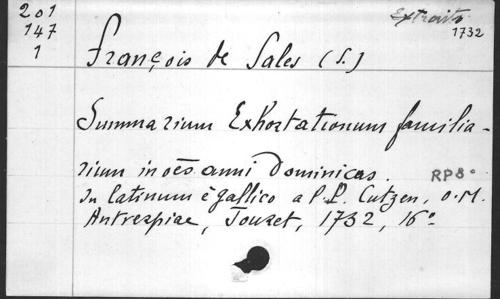 201
147
1
Extraits
1732
François de Sales (S.)
Summarium Exhortationum familia-
rium in oēs anni Dominicas.
RP8°
In latinum è gallico a P. P. Cutzen, O.M.
Antverpiae, Jouret, 1732, 16°